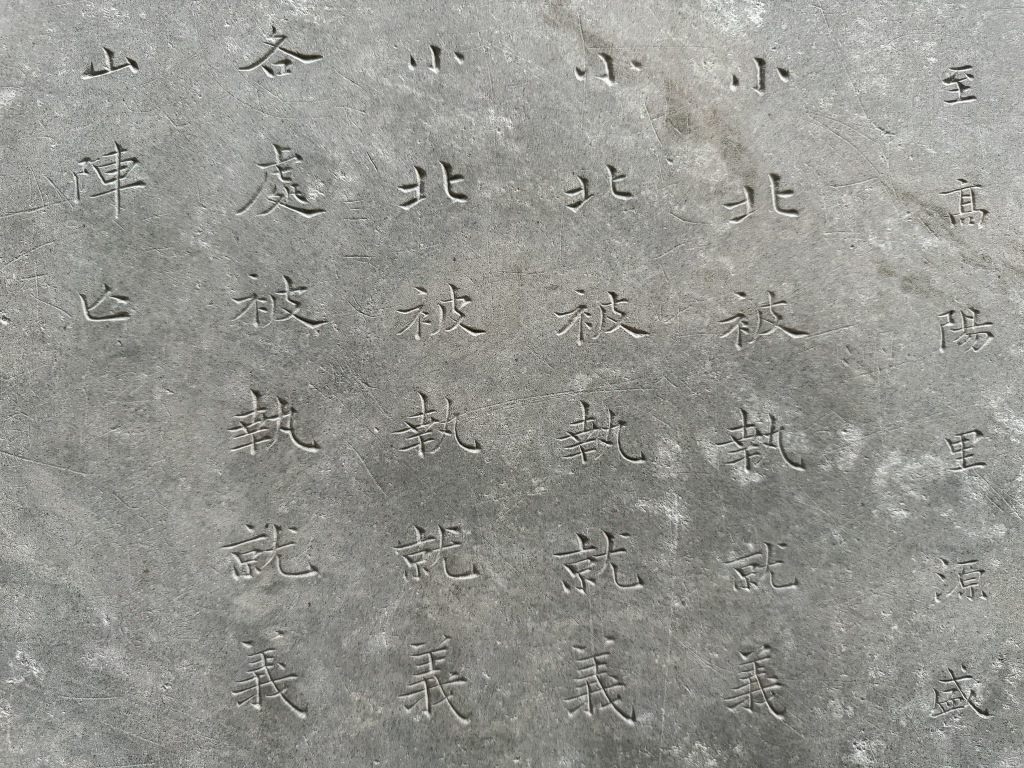 至高陽里源盛
小北被執就義
小北被執就義
小北被執就義
各處被執就義
山陣亡